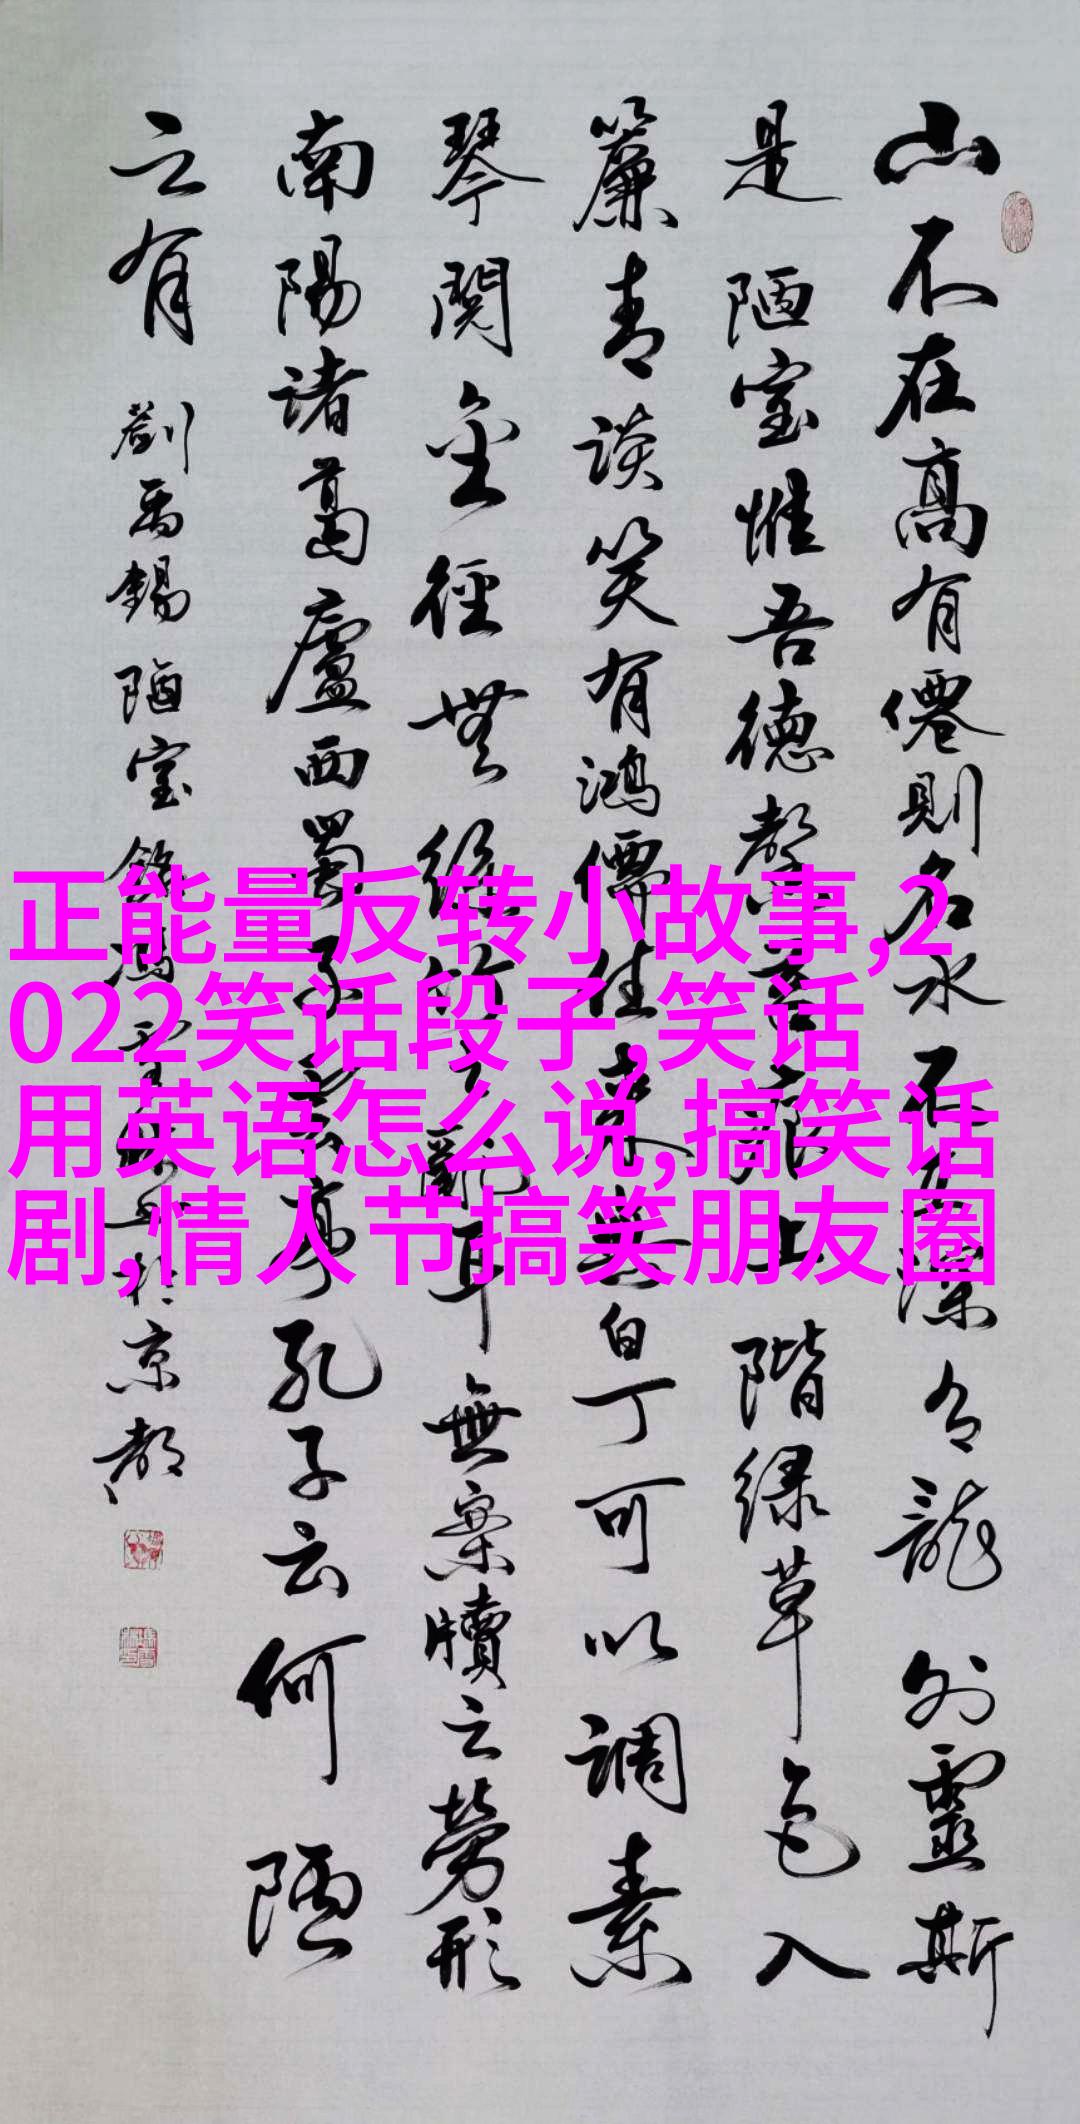 山不在高有僊則名水不在深有龍则靈斯
是陋室惟吾德馨苔痕上階绿草色入
簾青谈笑有鴻儒往来無白丁可以调素
琴閱金經無絲竹之亂耳無案牘之勞形
南陽诸葛廬西蜀子云亭孔子云何陋
之有
劉禹錫陋室銘馮於京都
正能量反转小故事,2
022笑话段子,笑话
用英语怎么说,搞笑话
剧,情人节搞笑朋友圈